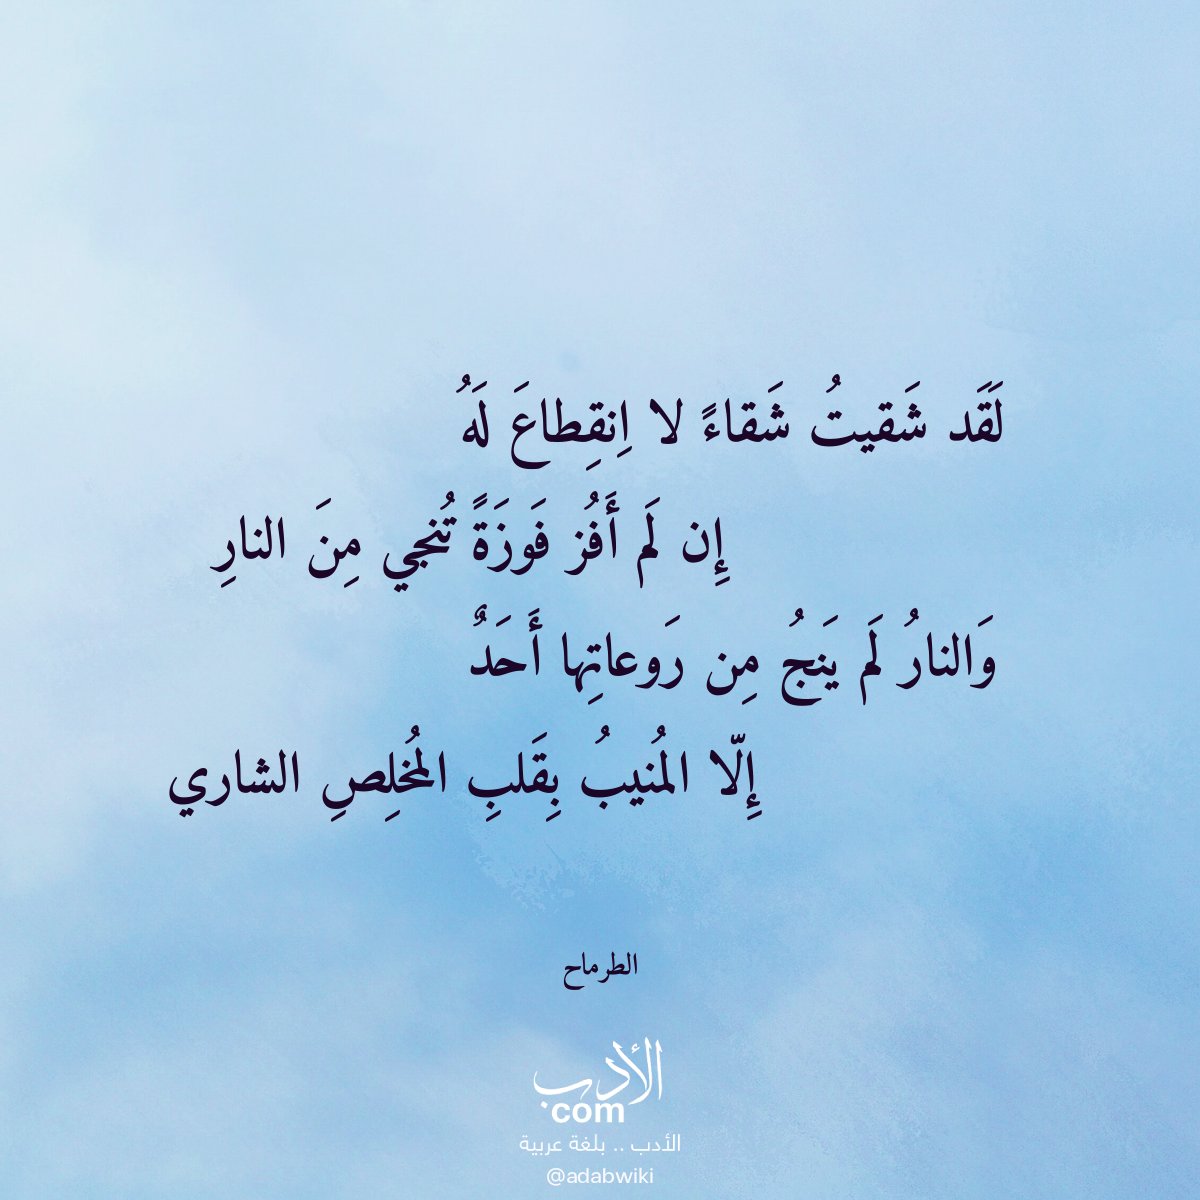 لَقَد شَقيتُ شَقاءً لا اِنقِطاعَ لَهُ
إِن لَم أَفُز فَوزَةً تُنجي مِنَ النارِ
وَالنارُ لَم يَنجُ مِن رَوعاتِها أَحَدٌ
إِلّا المُنيبُ بِقَلبِ المُخلِصِ الشاري
الطرماح
الأدب
com
الأدب .. بلغة عربية
@adabwiki